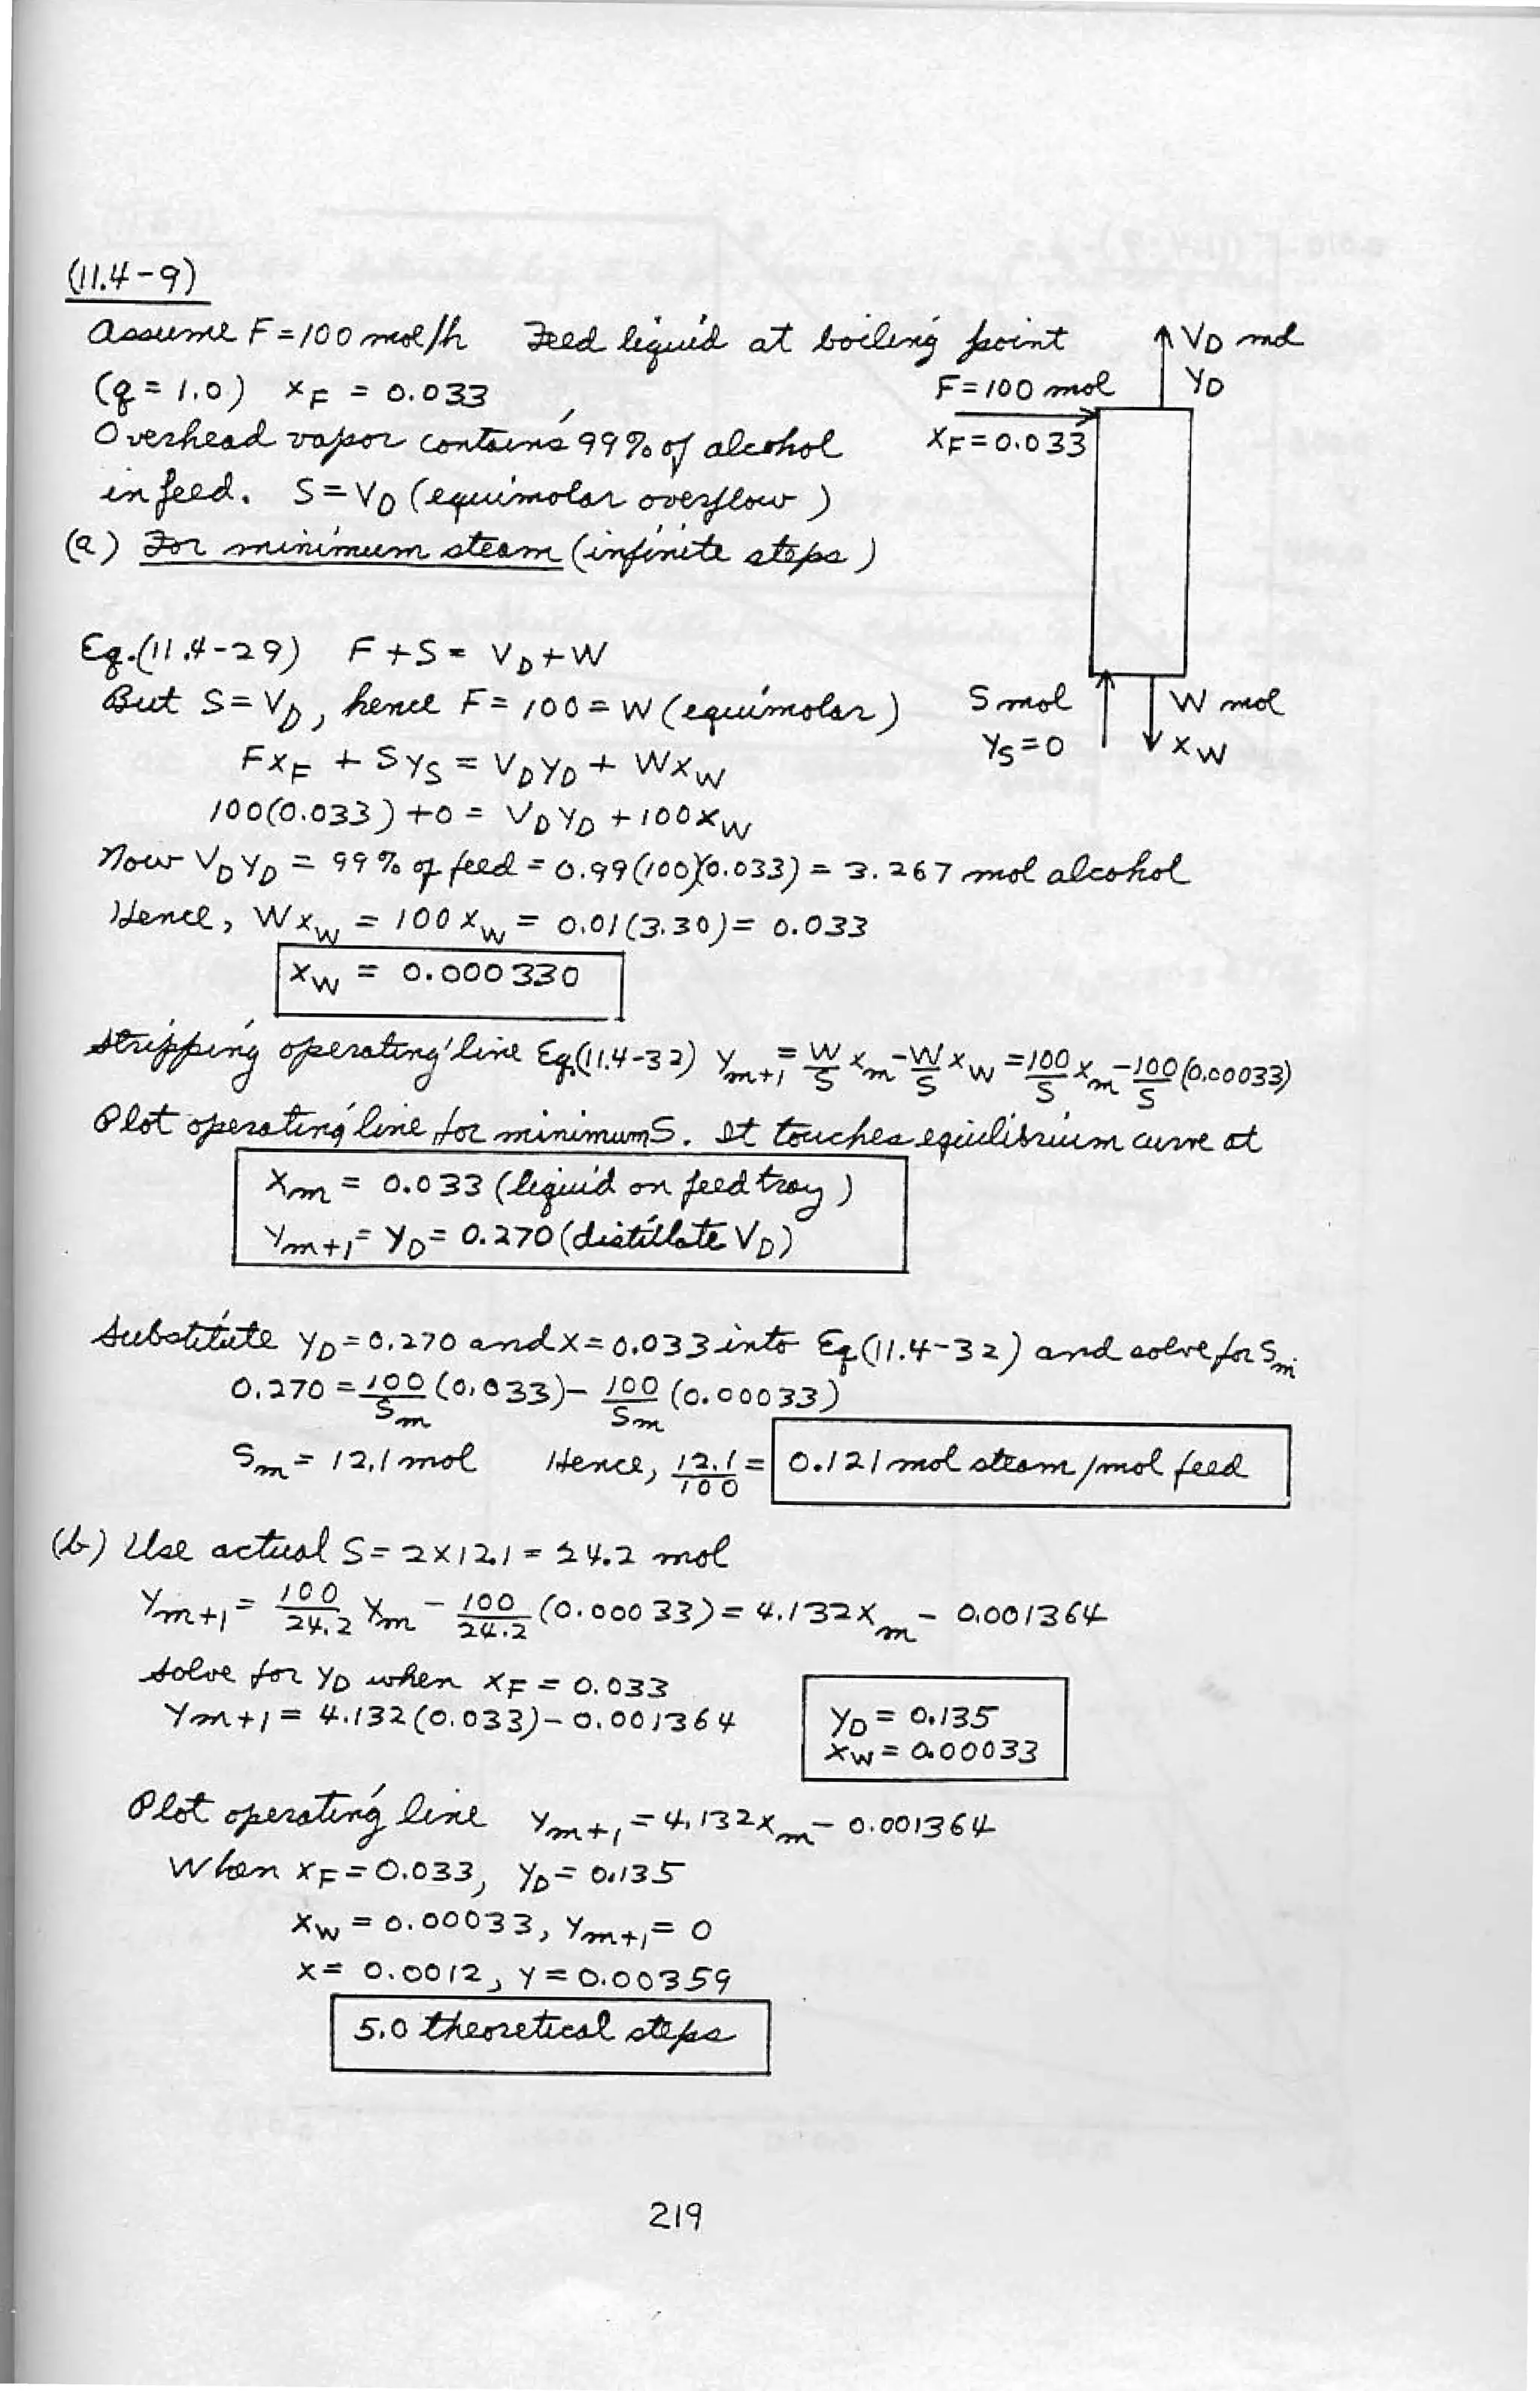 (11.4-9)
Assume F = 100 mol/h Feed liquid at boiling point
(q = 1.0) xF = 0.033
Overhead vapor contains 99% of alcohol
in feed. S = VD (equimolar overflow)
VD mol
yD
F = 100 mol
xF = 0.033
S mol
yS = 0
W mol
xW
(a) For minimum steam (infinite steps)
Eq. (11.4-29) F + S = VD + W
But S = VD, hence F = 100 = W (equimolar)
FxF + SyS = VDyD + WxW
100(0.033) + 0 = VDyD + 100xW
Now VDyD = 99% of feed = 0.99(100)(0.033) = 3.267 mol alcohol
Hence, WxW = 100xW = 0.01(3.30) = 0.033
xW = 0.000330
Stripping operating line Eq.(11.4-32) ym+1 = W/S xm - W/S xW = 100/S xm - 100/S (0.00033)
Plot operating line for minimum S. It touches equilibrium curve at
xm = 0.033 (liquid on feed tray)
ym+1 = yD = 0.270 (distillate VD)
Substitute yD = 0.270 and x = 0.033 into Eq(11.4-32) and solve for Sm
0.270 = 100/Sm (0.033) - 100/Sm (0.00033)
Sm = 12.1 mol Hence, 12.1/100 = 0.121 mol steam/mol feed
(b) Use actual S = 2 x 12.1 = 24.2 mol
ym+1 = 100/24.2 xm - 100/24.2 (0.00033) = 4.132xm - 0.001364
Solve for yD when xF = 0.033
ym+1 = 4.132(0.033) - 0.001364
yD = 0.135
xW = 0.00033
Plot operating line ym+1 = 4.132xm - 0.001364
When xF = 0.033, yD = 0.135
xW = 0.00033, ym+1 = 0
x = 0.0012, y = 0.00359
5.0 theoretical steps
219